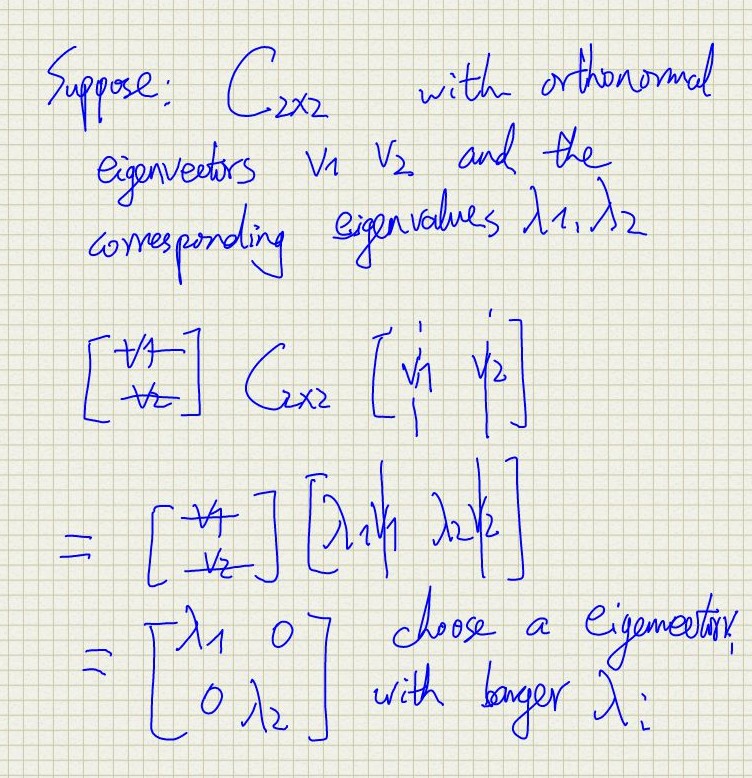 Suppose: C₂ₓ₂ with orthonormal
eigenvectors v1 v2 and the
corresponding eigenvalues λ1, λ2
[v1 v2] C₂ₓ₂ [v1 v2]
= [v1 v2] [λ1v1 λ2v2]
= [λ1 0 choose a eigenvector,
0 λ2] with larger λi